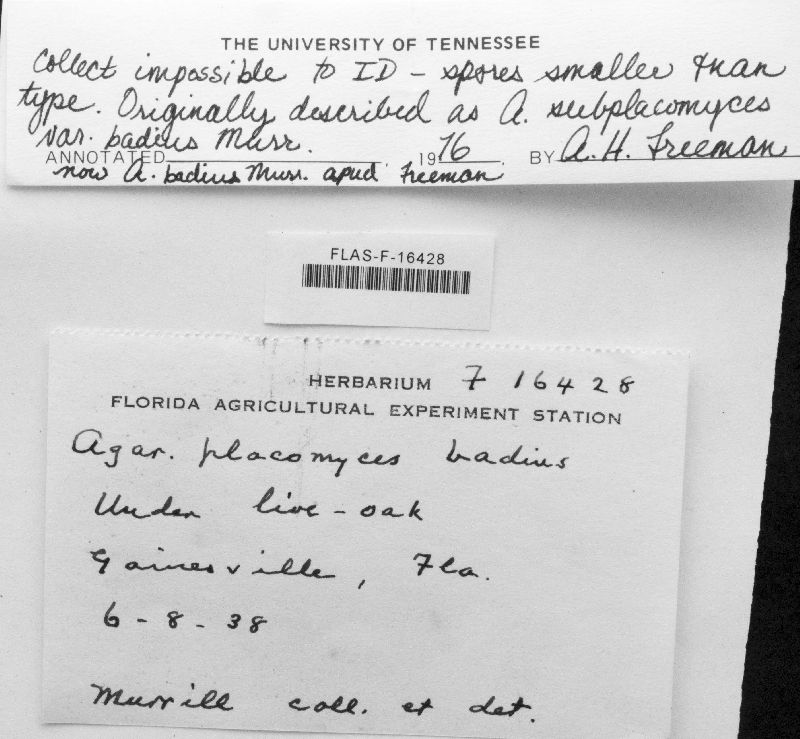 THE UNIVERSITY OF TENNESSEE
Collect impossible to ID – spores smaller than
type. Originally described as A. subplacomyces
var. badius Murr.
ANNOTATED 1976 BY A. H. Freeman
now A. badius Murr. apud Freeman
FLAS-F-16428
HERBARIUM F 16428
FLORIDA AGRICULTURAL EXPERIMENT STATION
Agar. placomyces badius
Under live-oak
Gainesville, Fla.
6-8-38
Murrill coll. et det.